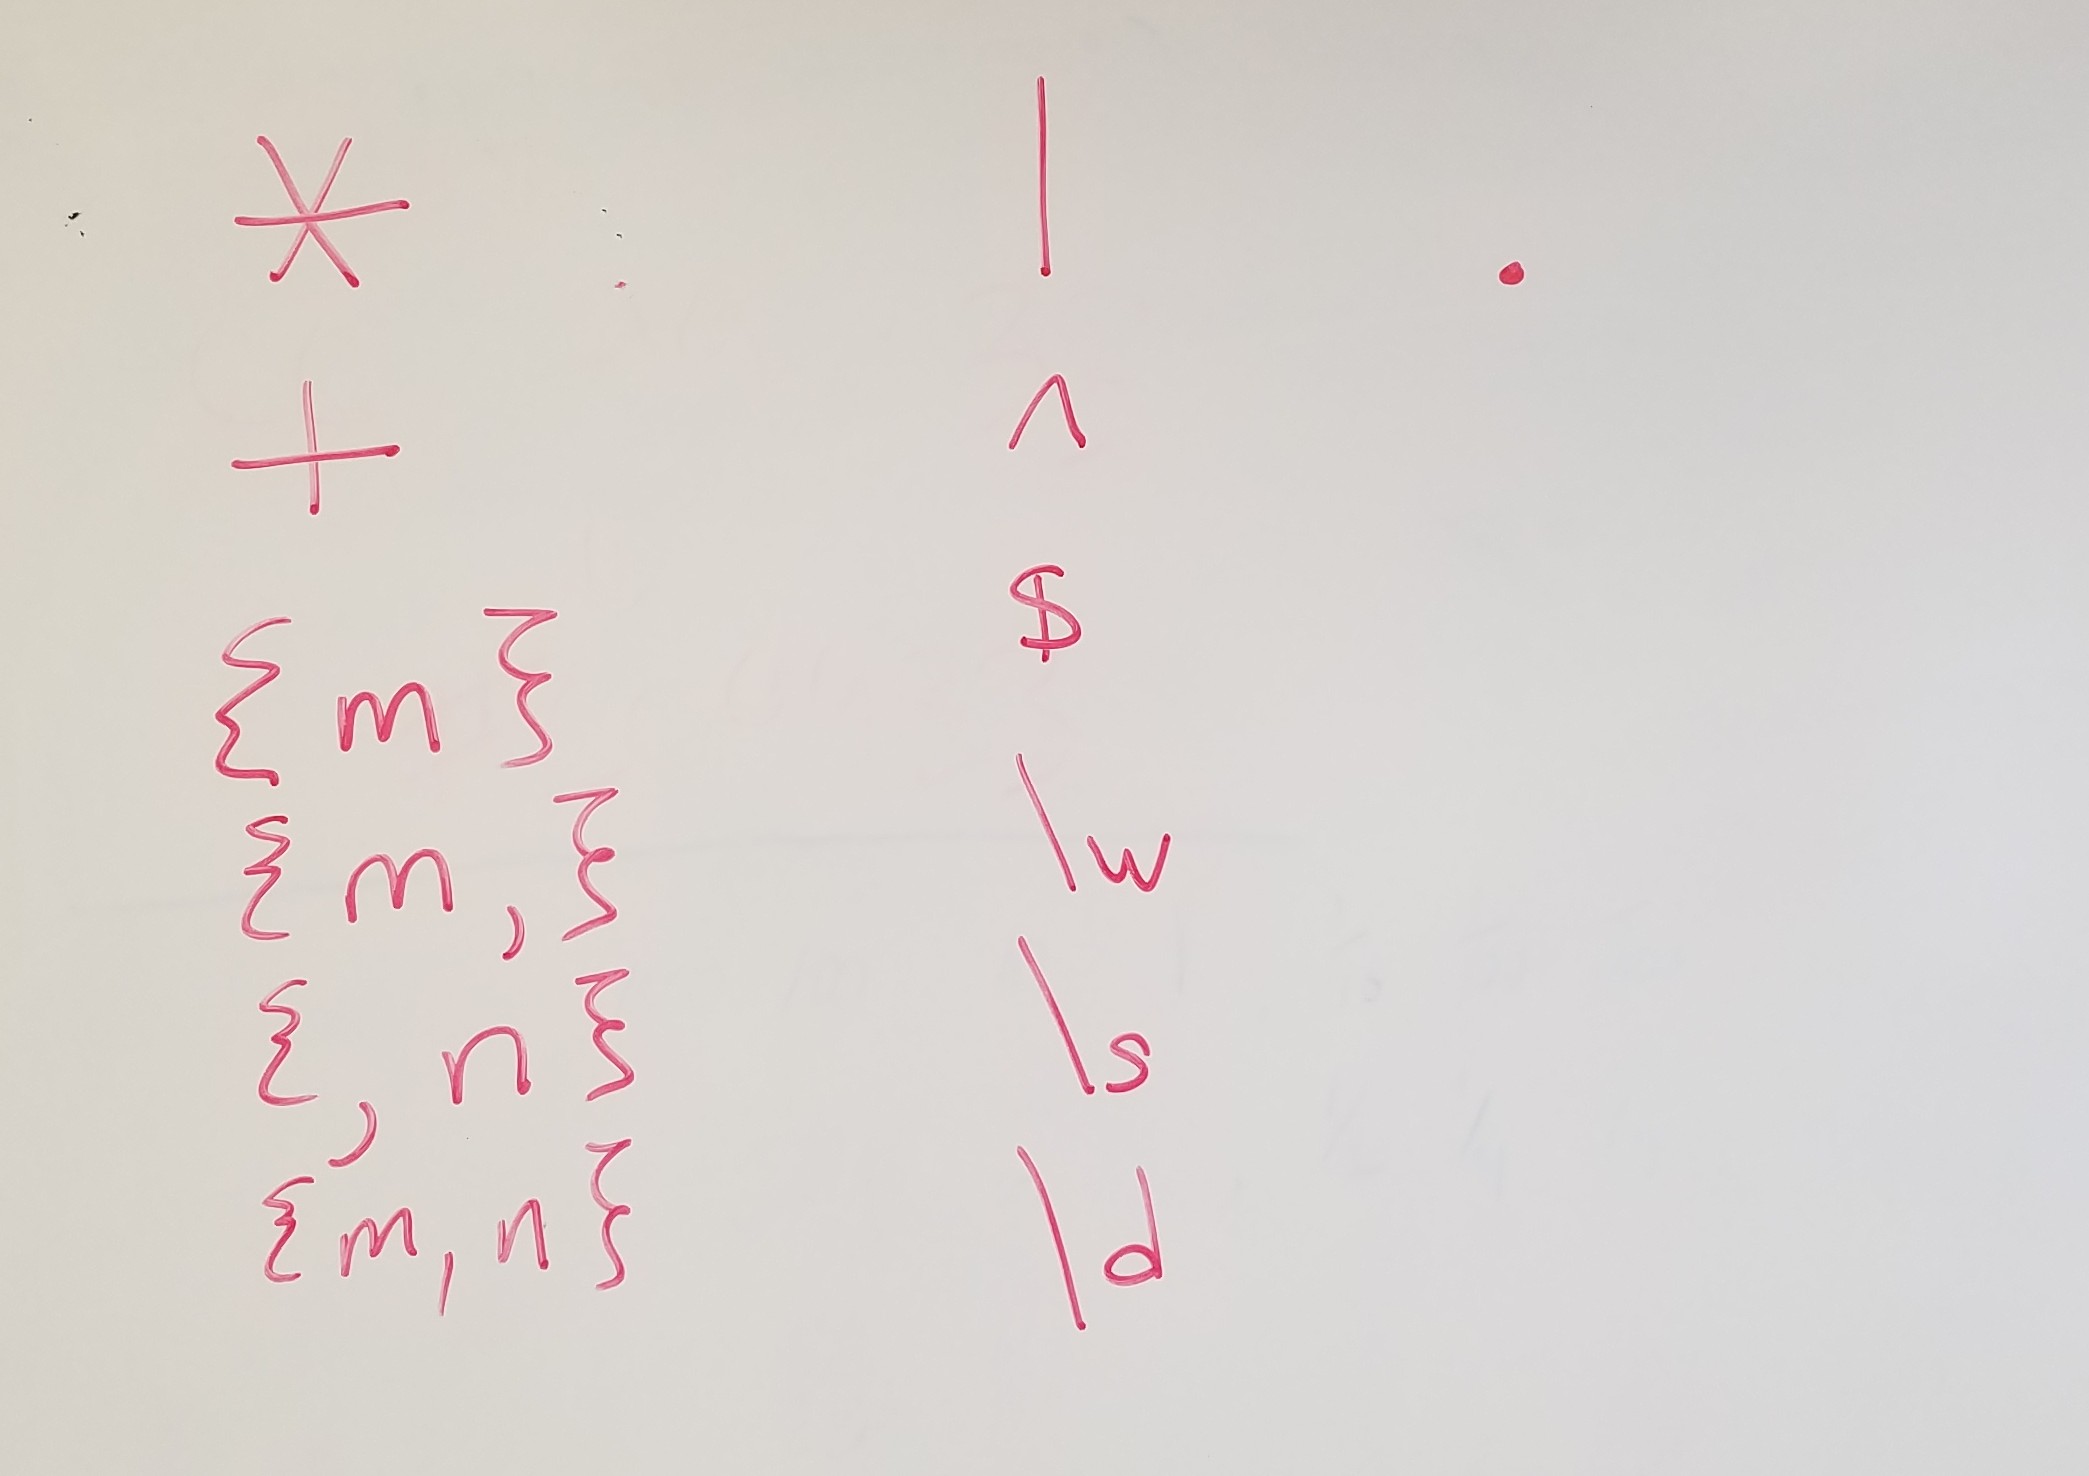 * | .
+ ^
{m} $
{m,} \w
{,n} \s
{m,n} \d